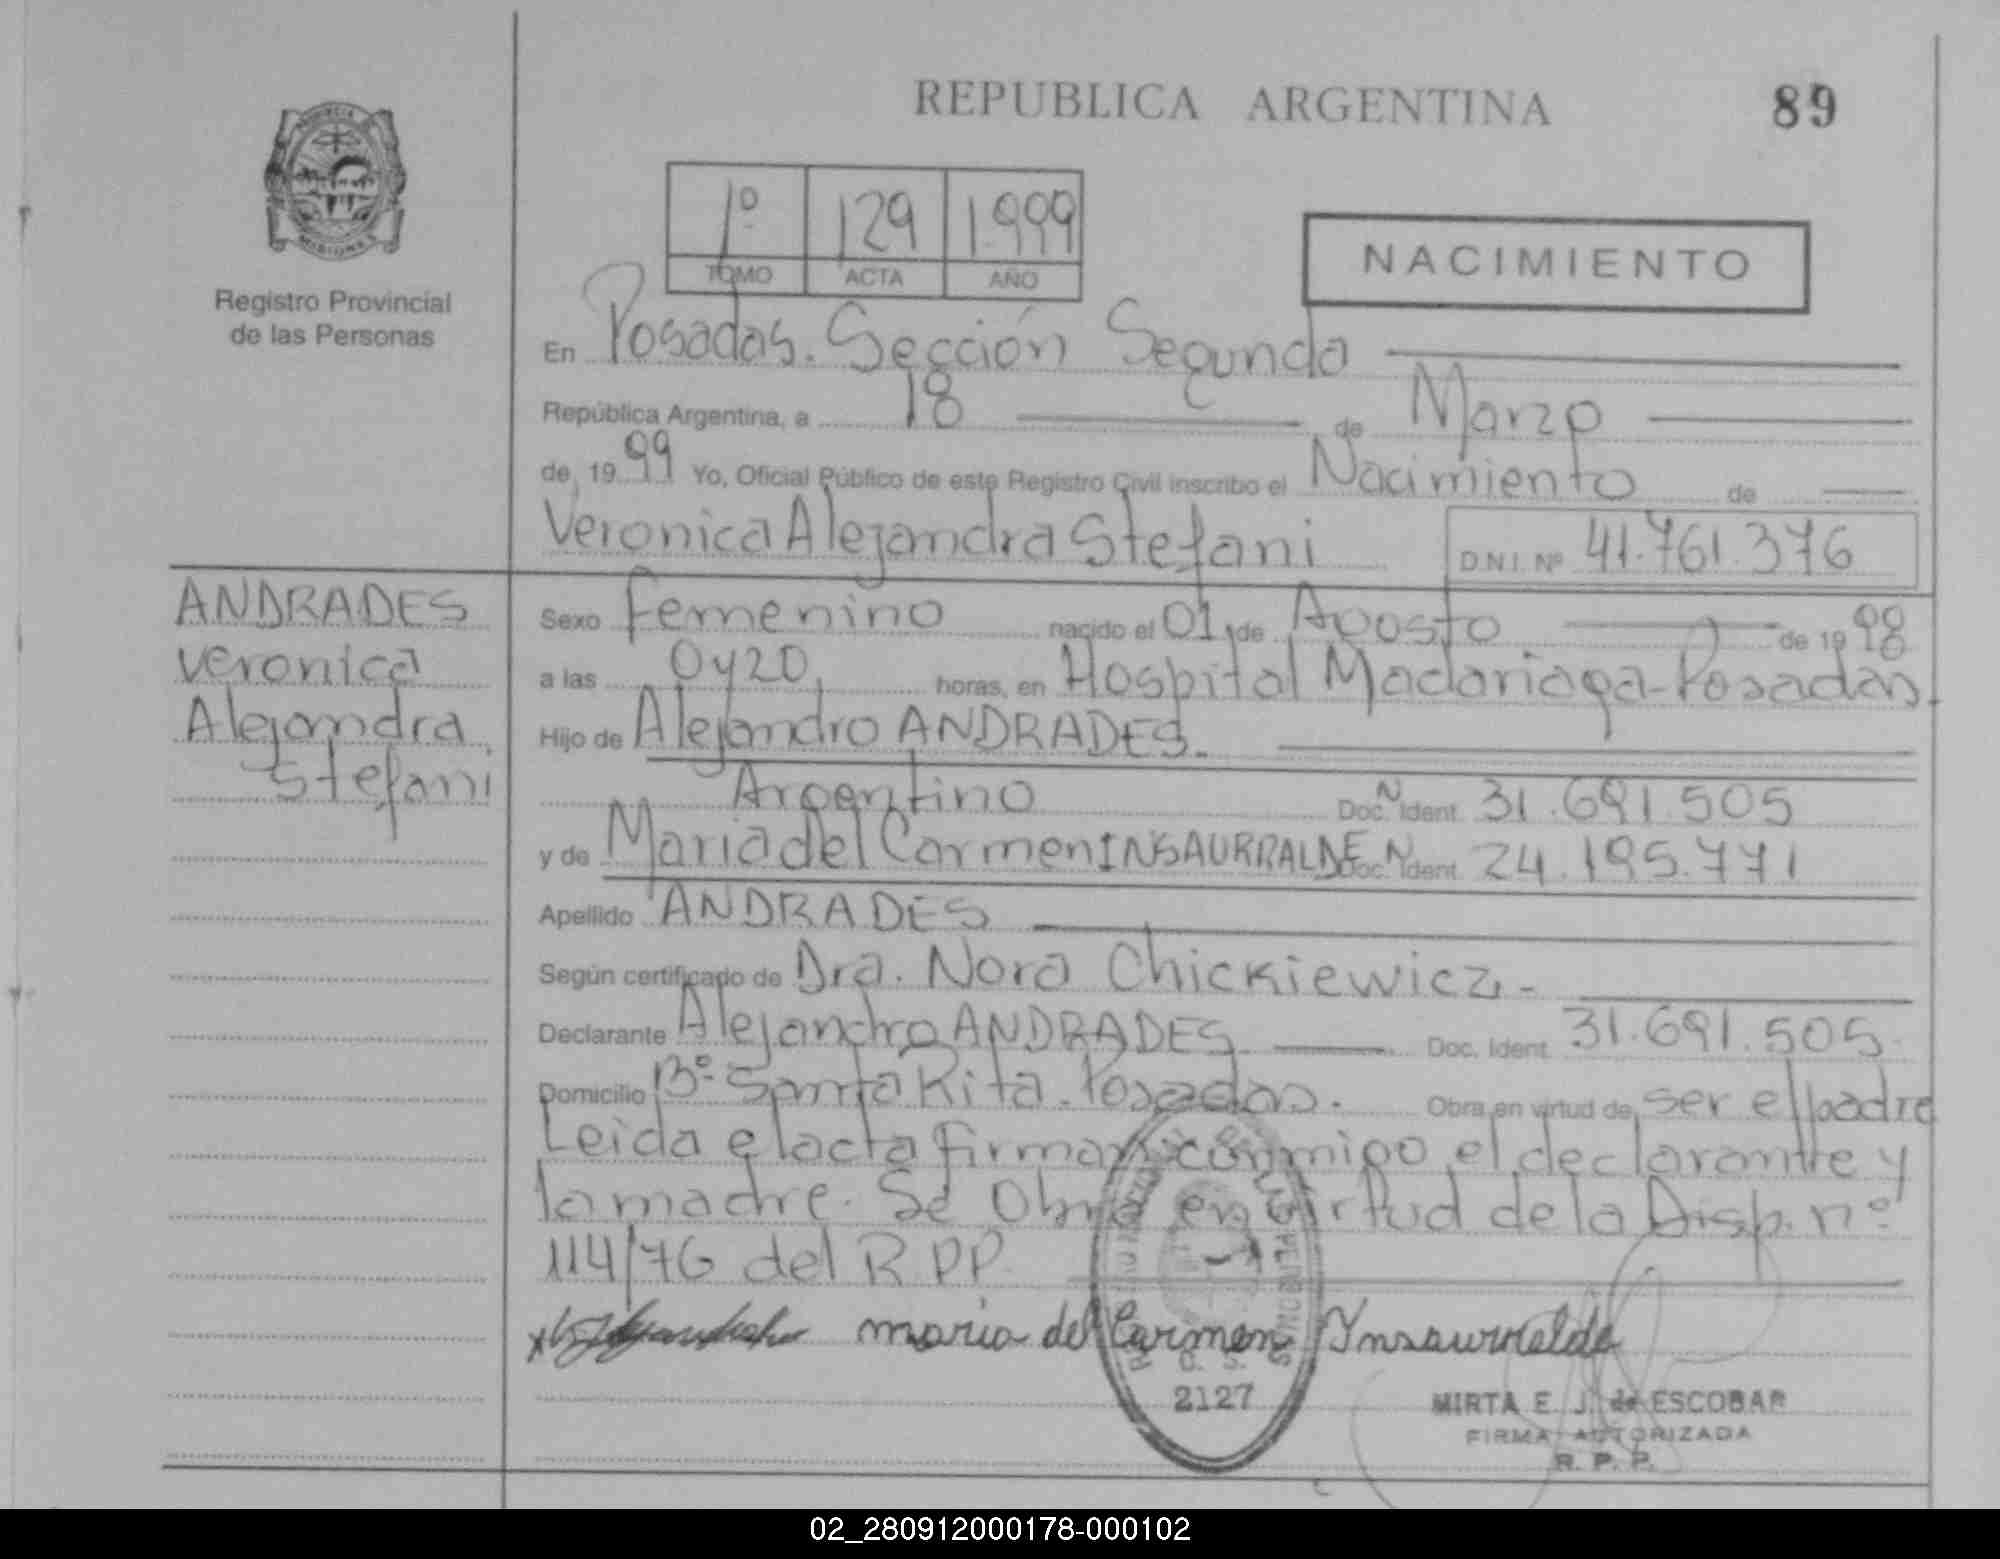 REPUBLICA ARGENTINA
89
1º 129 1.999
TOMO ACTA AÑO
NACIMIENTO
MISIONES
Registro Provincial
de las Personas
En Posadas. Sección Segunda
República Argentina, a 18 de Marzo
de 1999 Yo, Oficial Público de este Registro Civil inscribo el Nacimiento de
Veronica Alejandra Stefani D.N.I. Nº 41.761.376
ANDRADES
Veronica
Alejandra
Stefani
Sexo Femenino nacido el 01 de Agosto de 1998
a las 0y20 horas, en Hospital Madariaga-Posadas.
Hijo de Alejandro ANDRADES.
Argentino Doc. N Ident. 31.691.505
y de Maria del Carmen INSAURRALDE Doc. N Ident. 24.195.771
Apellido ANDRADES
Según certificado de Dra. Nora Chickiewicz.-
Declarante Alejandro ANDRADES Doc. Ident. 31.691.505
Domicilio Bº Santa Rita. Posadas. Obra en virtud de ser el padre
Leida el acta firman conmigo el declarante y
la madre. Se Obra en virtud de la Disp. nº
114/76 del R.P.P.
maria del Carmen Ynsaurralde
2127
MIRTA E. J. de ESCOBAR
FIRMA AUTORIZADA
R. P. P.
02_280912000178-000102